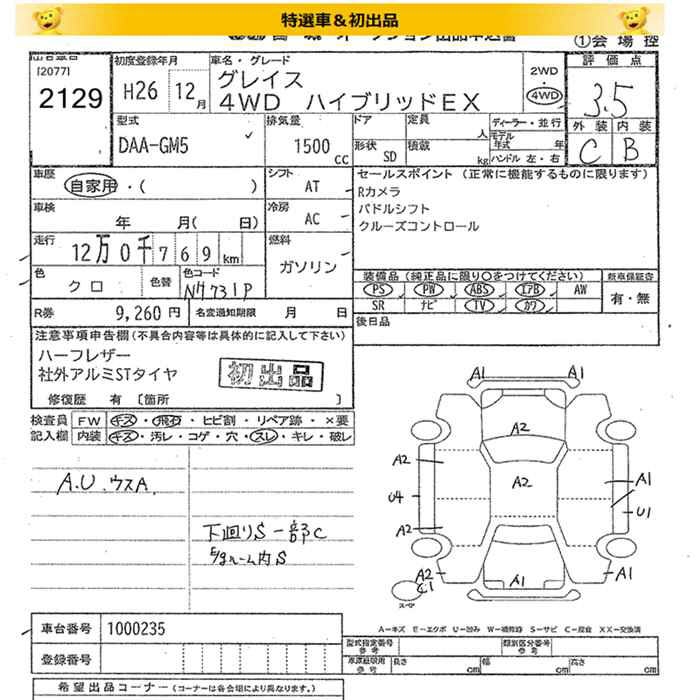 特選車＆初出品
①会場控
[2077]
2129
初度登録年月
H26 12月
車名・グレード
グレイス
4WD ハイブリッドEX
2WD
4WD
評価点
3.5
外装 内装
C B
型式
DAA-GM5
排気量
1500 cc
ドア
形状 SD
定員 人
積載 kg
ディーラー・並行
モデル年式 年
ハンドル 左・右
車歴
自家用・( )
シフト
AT
セールスポイント (正常に機能するものに限ります)
Rカメラ
パドルシフト
クルーズコントロール
車検
年 月(日)
冷房
AC
走行
12万0千769km
燃料
ガソリン
色
クロ
色替
色コード
NH731P
装備品 (純正品に限り○をつけてください)
PS PW ABS エアB AW
SR ナビ TV カワ
新車保証書
有・無
R券 9,260円 名変通知期限 月 日
後日品
注意事項申告欄 (不具合内容等は具体的に記入して下さい)
ハーフレザー
社外アルミSTタイヤ
初出品
修復歴 有 〔箇所 〕
検査員記入欄
FW キズ・飛石・ヒビ割・リペア跡・×要
内装 キズ・汚レ・コゲ・穴・スレ・キレ・破レ
A.U.ウスA.
下廻りS一部C
E/gルーム内S
A1
A1
A2
A2
A2
U4
A2
A1
U1
A2
C1
A1
A1
スペア
A－キズ E－エクボ U－凹み W－補修跡 S－サビ C－腐食 XX－交換済
車台番号 1000235
登録番号
型式指定番号 参考
類別区分番号 参考
車庫証明用 参考 長さ cm 幅 cm 高さ cm
希望出品コーナー (コーナーは各会場により異なります。)